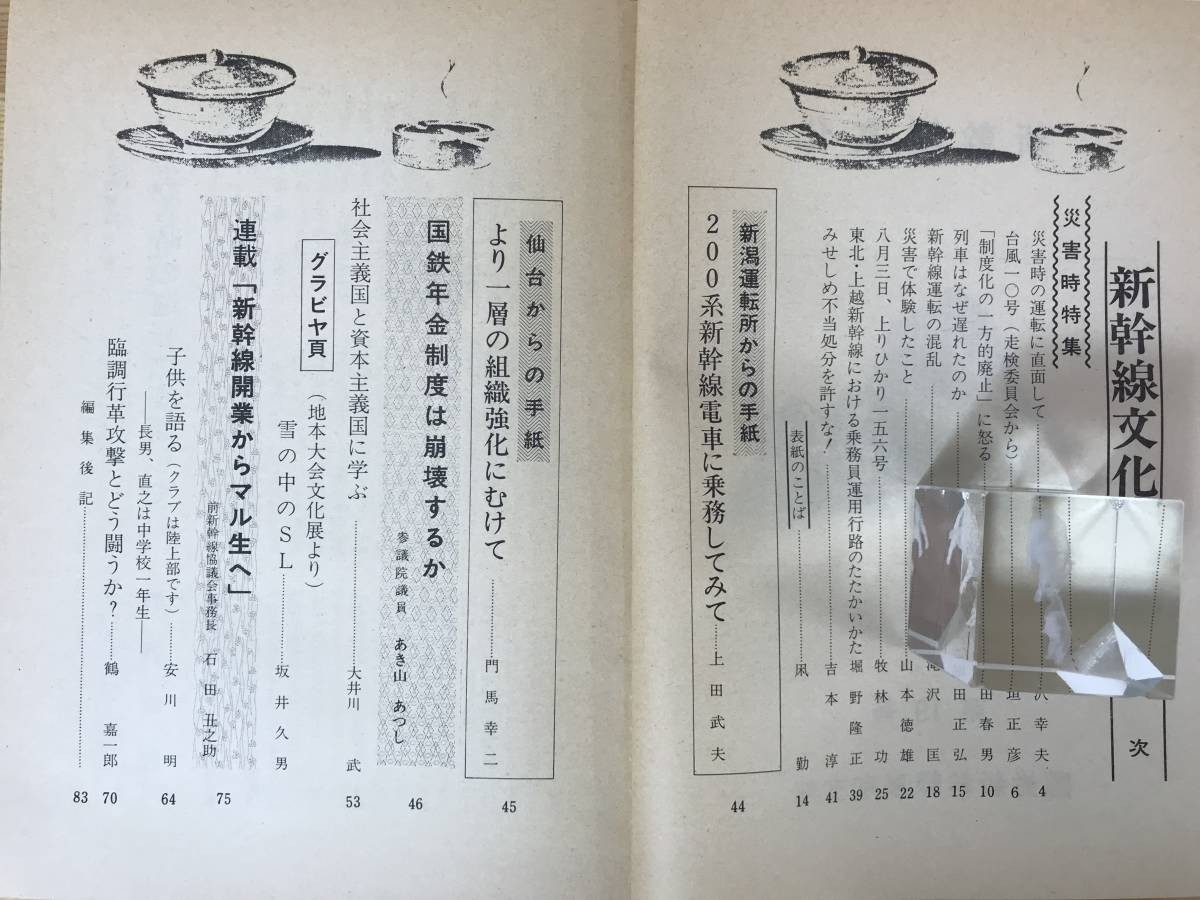 新幹線文化
次
災害時特集
災害時の運転に直面して 幸夫 4
台風一〇号(走検委員会から) 垣正彦 6
「制度化の一方的廃止」に怒る 田春男 10
列車はなぜ遅れたのか 田正弘 15
新幹線運転の混乱 沢 匡 18
災害で体験したこと 山本徳雄 22
八月三日、上りひかり一五六号 牧林 功 25
東北・上越新幹線における乗務員運用行路のたたかいかた 堀野隆正 39
みせしめ不当処分を許すな! 吉本 淳 41
表紙のことば 凩 勤 14
新潟運転所からの手紙
200系新幹線電車に乗務してみて 上田武夫 44
仙台からの手紙
より一層の組織強化にむけて 門馬幸二 45
国鉄年金制度は崩壊するか 参議院議員 あき山 あつし 46
社会主義国と資本主義国に学ぶ 大井川 武 53
グラビヤ頁(地本大会文化展より)
雪の中のSL 坂井久男
連載「新幹線開業からマル生へ」 前新幹線協議会事務長 石田丑之助 75
子供を語る(クラブは陸上部です) 安川 明 64
――長男、直之は中学校一年生――
臨調行革攻撃とどう闘うか? 鶴 嘉一郎 70
編集後記 83